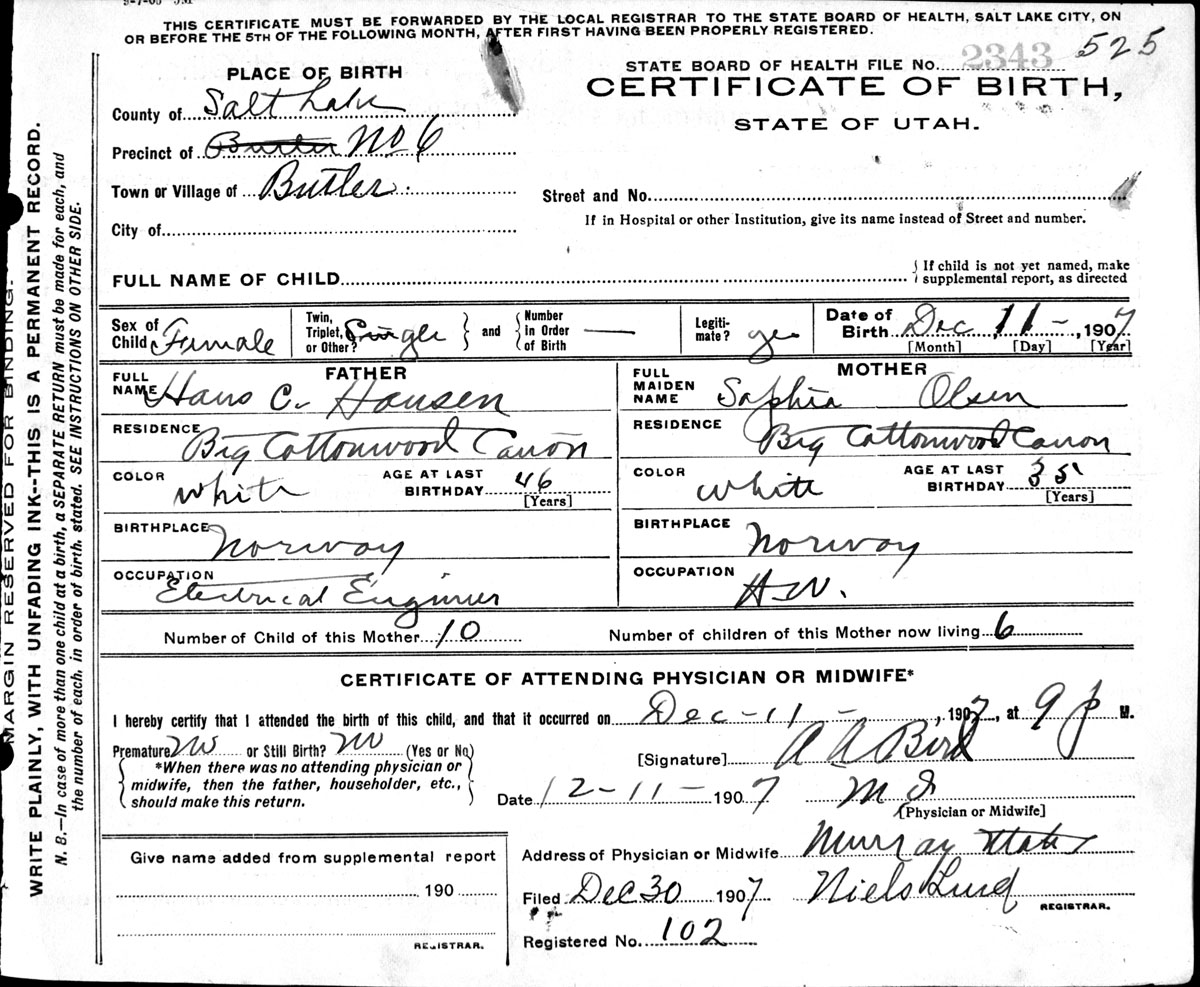 THIS CERTIFICATE MUST BE FORWARDED BY THE LOCAL REGISTRAR TO THE STATE BOARD OF HEALTH, SALT LAKE CITY, ON
OR BEFORE THE 5TH OF THE FOLLOWING MONTH, AFTER FIRST HAVING BEEN PROPERLY REGISTERED.
525
STATE BOARD OF HEALTH FILE NO. 2343
CERTIFICATE OF BIRTH,
STATE OF UTAH.
PLACE OF BIRTH
County of Salt Lake
Precinct of No 6
Town or Village of Butler.
City of
Street and No.
If in Hospital or other Institution, give its name instead of Street and number.
FULL NAME OF CHILD
{ If child is not yet named, make
supplemental report, as directed
Sex of Child Female
Twin, Triplet, or Other? Single } and { Number in Order of Birth —
Legiti-mate? yes
Date of Birth Dec 11 - , 1907
[Month] [Day] [Year]
FATHER
FULL NAME Hans C. Hansen
RESIDENCE Big Cottonwood Canon
COLOR White AGE AT LAST BIRTHDAY 46
[Years]
BIRTHPLACE Norway
OCCUPATION Electrical Engineer
MOTHER
FULL MAIDEN NAME Sophia Olsen
RESIDENCE Big Cottonwood Canon
COLOR White AGE AT LAST BIRTHDAY 35
[Years]
BIRTHPLACE Norway
OCCUPATION H-W.
Number of Child of this Mother 10 Number of children of this Mother now living 6
CERTIFICATE OF ATTENDING PHYSICIAN OR MIDWIFE*
I hereby certify that I attended the birth of this child, and that it occurred on Dec-11- , 1907, at 9 p M.
Premature No or Still Birth? No (Yes or No)
{ *When there was no attending physician or
midwife, then the father, householder, etc.,
should make this return. }
[Signature] A A Bird
Date 12-11- 1907 M D
[Physician or Midwife]
Address of Physician or Midwife Murray Utah
Filed Dec 30 1907 Niels Lind
REGISTRAR.
Registered No. 102
Give name added from supplemental report
190
REGISTRAR.
MARGIN RESERVED FOR BINDING.
WRITE PLAINLY, WITH UNFADING INK--THIS IS A PERMANENT RECORD.
N. B.—In case of more than one child at a birth, a SEPARATE RETURN must be made for each, and
the number of each, in order of birth, stated. SEE INSTRUCTIONS ON OTHER SIDE.